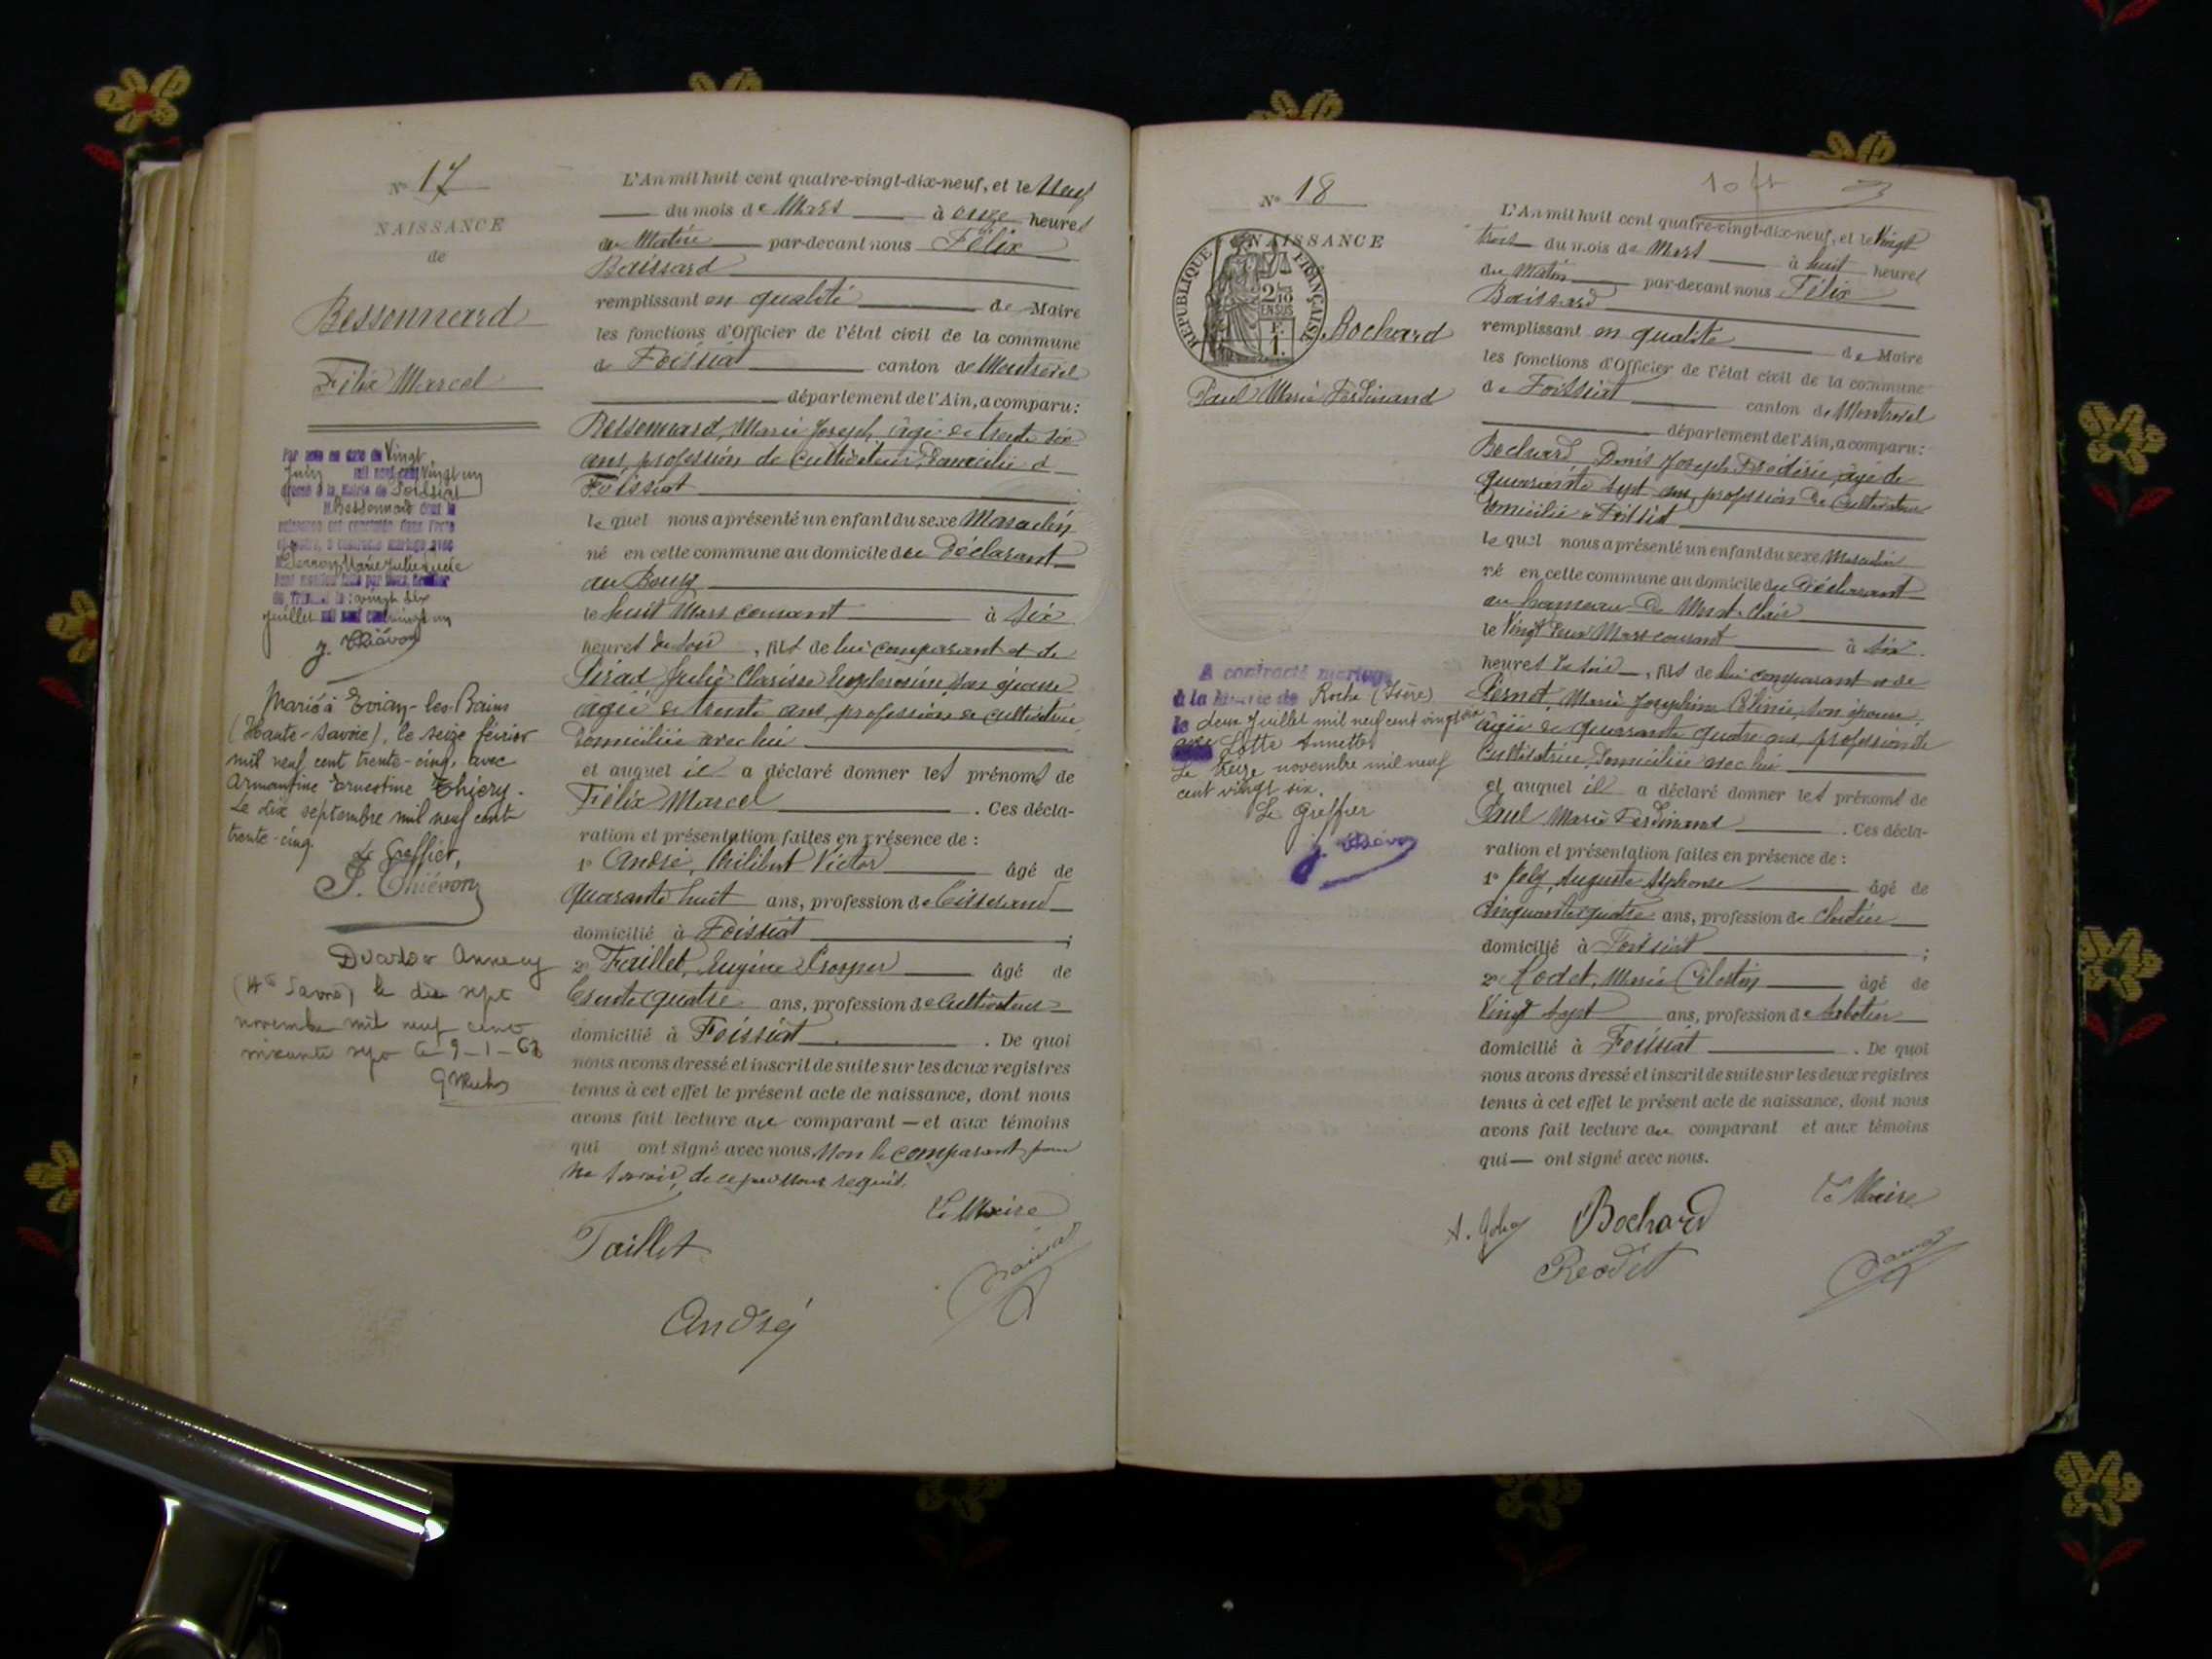 N° 17
NAISSANCE
de
Bessonnard
Félix Marcel
Par acte en date du Vingt
Juin mil neuf cent Vingt un
dressé à la Mairie de Foissiat
M. Bessonnard dont la
naissance est constatée dans l'acte
ci-contre, a contracté mariage avec
Marie Julie
juillet mil neuf cent vingt un
J. Thiévon
Marié à Evian-les-Bains
(Haute-Savoie), le seize février
mil neuf cent trente-cinq, avec
Armantine Ernestine Thiéry.
Le dix septembre mil neuf cent
trente-cinq.
Le Greffier,
J. Thiévon
Annecy
(Hte Savoie) le dix sept
novembre mil neuf cent
soixante sept le 9-1-68
L'An mil huit cent quatre-vingt-dix-neuf, et le Neuf
du mois de Mars à onze heures
du Matin par-devant nous Félix
Baissard
remplissant en qualité de Maire
les fonctions d'Officier de l'état civil de la commune
de Foissiat canton de Montrevel
département de l'Ain, a comparu:
Bessonnard, Marie Joseph, âgé de trente six
ans, profession de Cultivateur, Domicilié à
Foissiat
lequel nous a présenté un enfant du sexe Masculin
né en cette commune au domicile du Déclarant
au Bourg
le huit Mars courant à Six
heures du Soir, fils de lui comparant et de
Pirad Julie Clarisse Euphrosine, son épouse
âgée de trente ans, profession de cultivatrice
Domiciliée avec lui
et auquel il a déclaré donner les prénoms de
Félix Marcel . Ces décla-
ration et présentation faites en présence de :
1° André, Philibert Victor âgé de
quarante huit ans, profession de Tisserand
domicilié à Foissiat ;
2° Faillet, Eugène Prosper âgé de
trente quatre ans, profession de Cultivateur
domicilié à Foissiat . De quoi
nous avons dressé et inscrit de suite sur les deux registres
tenus à cet effet le présent acte de naissance, dont nous
avons fait lecture au comparant — et aux témoins
qui ont signé avec nous Non le comparant pour
ne savoir, de ce par nous requis.
Le Maire
Faillet
André
N° 18
NAISSANCE
REPUBLIQUE FRANÇAISE
2/10
EN SUS
F.
1.
Bochard
Paul Marie Ferdinand
A contracté mariage
à la Mairie de Roche (Isère)
le deux Juillet mil neuf cent vingt six
avec Lotte Annette
Le treize novembre mil neuf
cent vingt six.
Le Greffier
J. Thiévon
L'An mil huit cent quatre-vingt-dix-neuf, et le Vingt
trois du mois de Mars à huit heures
du Matin par-devant nous Félix
Baissard
remplissant en qualité de Maire
les fonctions d'Officier de l'état civil de la commune
de Foissiat canton de Montrevel
département de l'Ain, a comparu:
Bochard Denis Joseph Frédéric, âgé de
quarante sept ans, profession de Cultivateur
Domicilié à Foissiat
lequel nous a présenté un enfant du sexe Masculin
né en cette commune au domicile du Déclarant
au hameau de Mont-Clair
le Vingt deux Mars courant à six
heures du Soir, fils de lui comparant et de
Pernot, Marie Joséphine Célinie, son épouse,
âgée de quarante quatre ans, profession de
Cultivatrice, Domiciliée avec lui
et auquel il a déclaré donner les prénoms de
Paul Marie Ferdinand . Ces décla-
ration et présentation faites en présence de :
1° Joly, Auguste Alphonse âgé de
cinquante quatre ans, profession de
domicilié à Foissiat ;
2° Rodet, Marie Célestin âgé de
Vingt Sept ans, profession de Sabotier
domicilié à Foissiat . De quoi
nous avons dressé et inscrit de suite sur les deux registres
tenus à cet effet le présent acte de naissance, dont nous
avons fait lecture au comparant et aux témoins
qui — ont signé avec nous.
Le Maire
A. Joly Bochard
Rodet